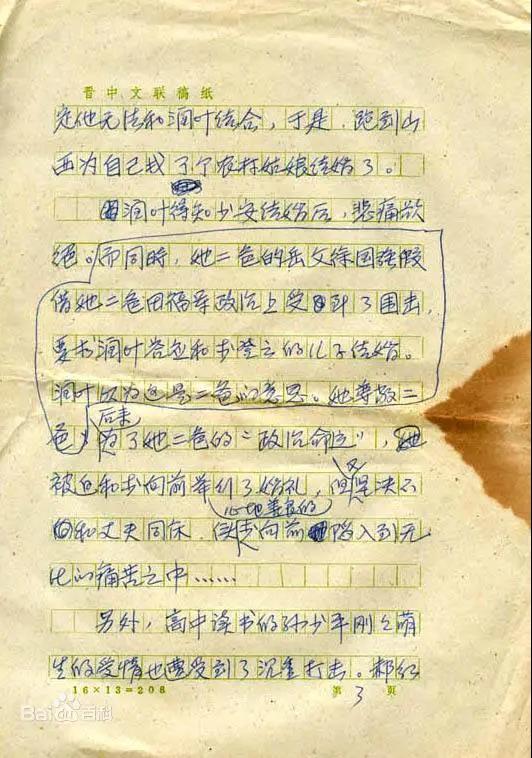 晋中文联稿纸
定他无法和润叶结合，于是，跑到山
西为自己找了个农村姑娘结婚了。
润叶得知少安结婚后，悲痛欲
绝。而同时，她二爸的岳父徐国强假
借她二爸田福军政治上受到了围击，
要求润叶答应和李登云的儿子结婚。
润叶以为这是二爸的意思。她尊敬二
爸，后来
为了她二爸的“政治命运”，
被迫和李向前举行了婚礼，但又决不
心地善良的
和丈夫同床，使李向前陷入到无
比的痛苦之中……
另外，高中读书的孙少平刚刚萌
生的爱情也遭受到了沉重打击。郝红
16×13=208
第3页
Baidu百科